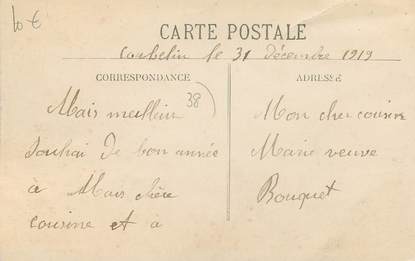 10 €
CARTE POSTALE
Corbelin le 31 décembre 1919
CORRESPONDANCE
ADRESSE
38
Mais meilleur
souhai de bon année
à Mais chère
cousine et à
Mon cher cousin
Marie veuve
Bouquet